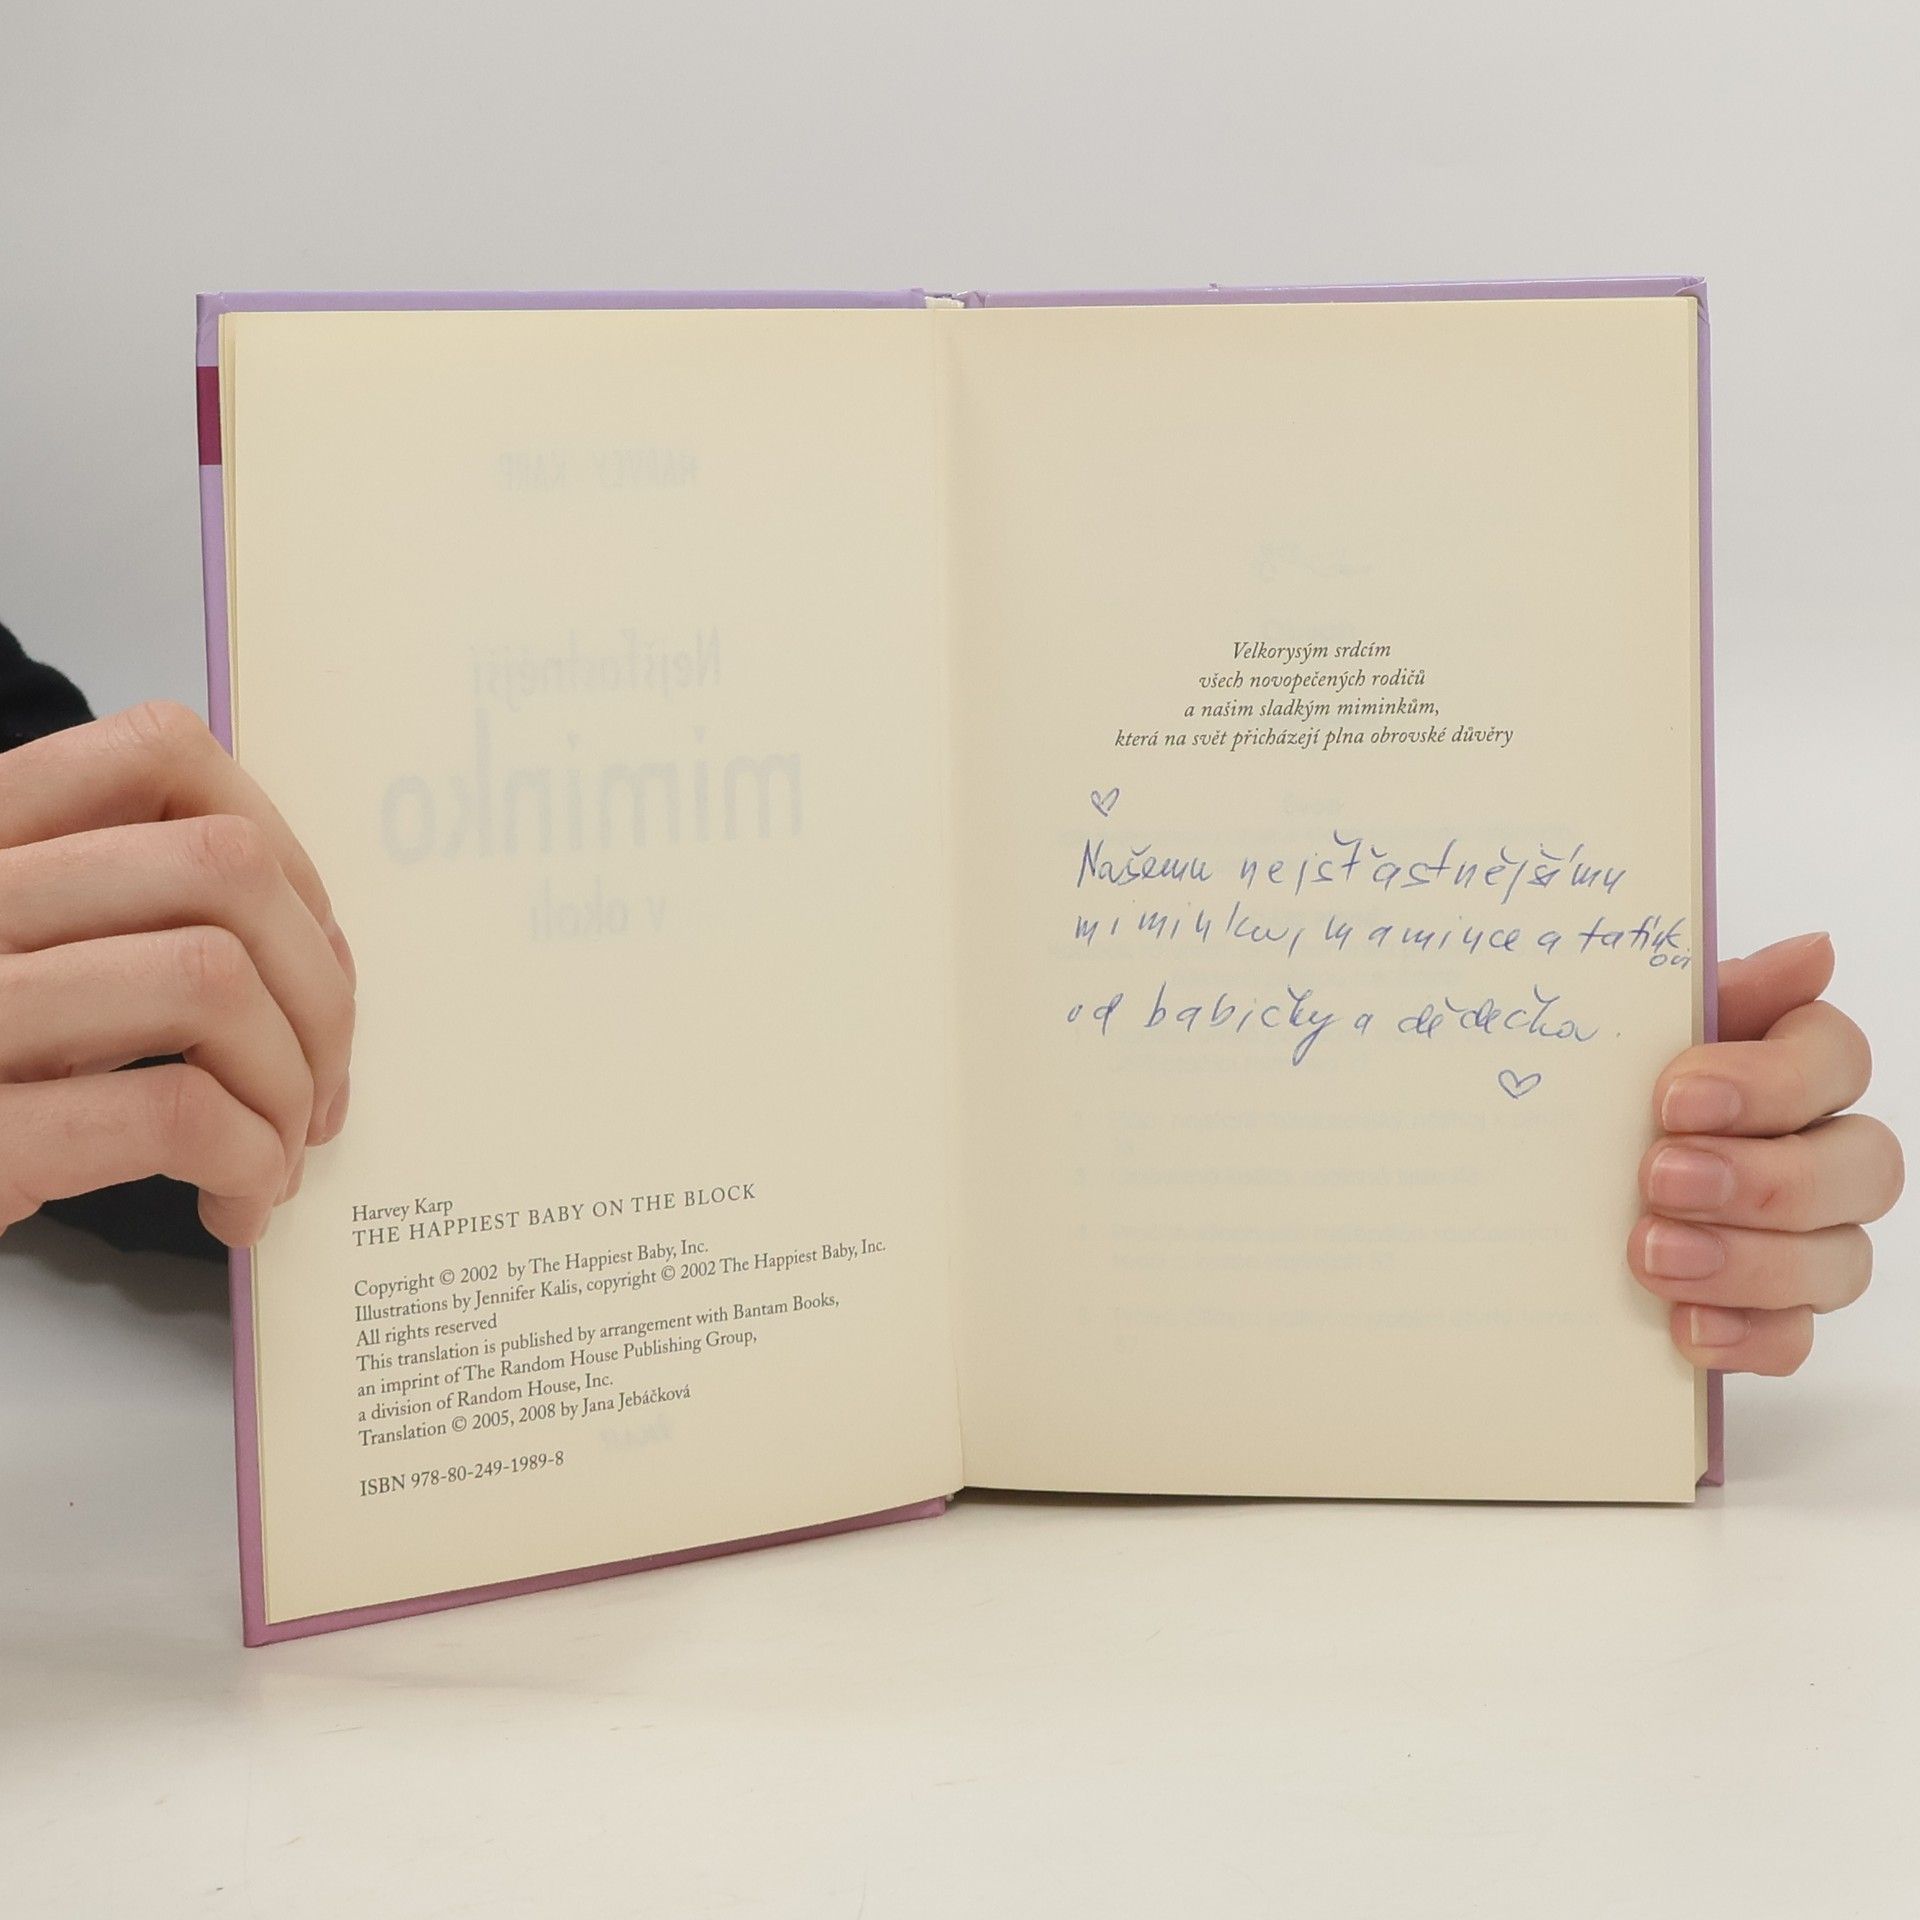 Harvey Karp
THE HAPPIEST BABY ON THE BLOCK
Copyright © 2002 by The Happiest Baby, Inc.
Illustrations by Jennifer Kalis, copyright © 2002 The Happiest Baby, Inc.
All rights reserved
This translation is published by arrangement with Bantam Books,
an imprint of The Random House Publishing Group,
a division of Random House, Inc.
Translation © 2005, 2008 by Jana Jebáčková
ISBN 978-80-249-1989-8
Velkorysým srdcím
všech novopečených rodičů
a našim sladkým miminkům,
která na svět přicházejí plna obrovské důvěry
Našemu nejšťastnějšímu
miminku, mamince a tatínk
ovi
od babičky a dědečka.